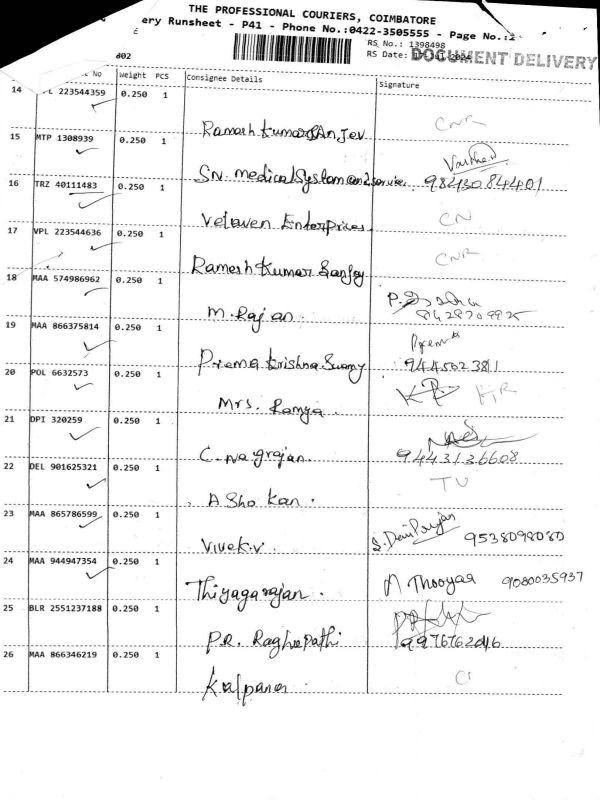 THE PROFESSIONAL COURIERS, COIMBATORE
ery Runsheet - P41 - Phone No.:0422-3505555 - Page No.:2
RS No.: 1398498
RS Date: DOCUMENT DELIVERY
802
No Weight PCS Consignee Details Signature
14 223544359 0.250 1 CNR
Ramesh Kumar
15 MTP 1308939 0.250 1
SN. medical System and service 9843084401
16 TRZ 40111483 0.250 1 CN
Velaven Enterprices
17 VPL 223544636 0.250 1 CNR
Ramesh Kumar Sanjey
18 MAA 574986962 0.250 1
M. Rajan
19 MAA 866375814 0.250 1
Prema Krishna Swamy 9445023811
20 POL 6632573 0.250 1
Mrs. Ramya.
21 DPI 320259 0.250 1
C. Nagrajan. 9443126608
22 DEL 901625321 0.250 1
A Sho Kan.
23 MAA 865786599 0.250 1
Vivek.v. 9538098080
24 MAA 944947354 0.250 1
Thiyagarajan. 9080035937
25 BLR 2551237188 0.250 1
P.R. Raghupathi 9976762046
26 MAA 866346219 0.250 1
Kalpana.